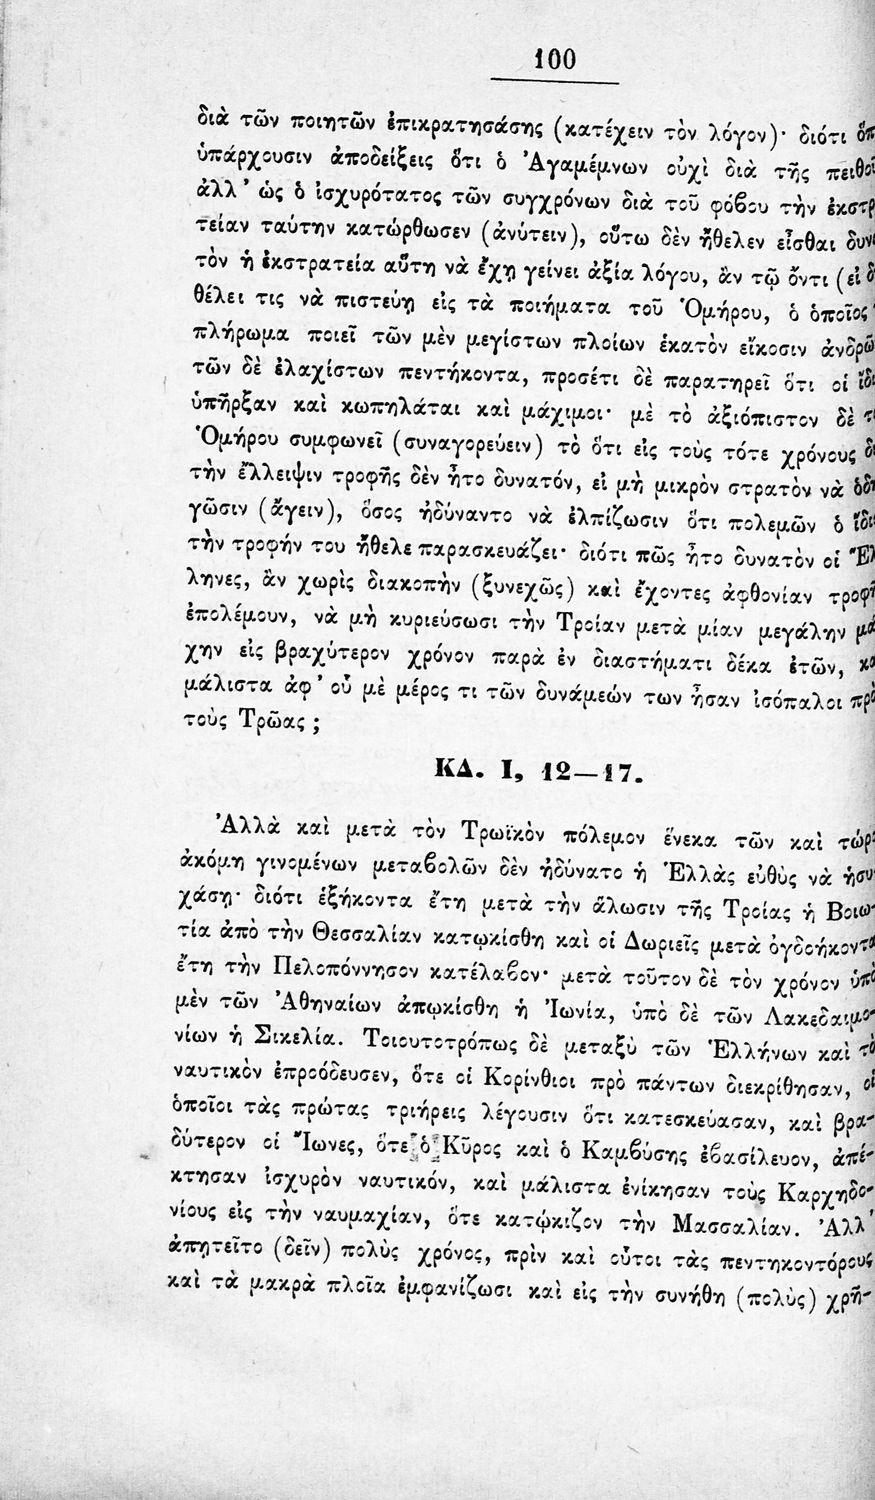 100
διὰ τῶν ποιητῶν ἐπικρατησάσης (κατέχειν τὸν λόγον)· διότι
ὑπάρχουσιν ἀποδείξεις ὅτι ὁ Ἀγαμέμνων οὐχὶ διὰ τῆς
ἀλλ' ὡς ὁ ἰσχυρότατος τῶν συγχρόνων διὰ τοῦ φόβου τὴν
τείαν ταύτην κατώρθωσεν (ἀνύτειν), οὕτω δὲν ἤθελεν εἶσθαι
τὸν ἡ ἐκστρατεία αὕτη νὰ ἔχῃ γείνει ἀξία λόγου, ἂν τῷ ὄντι (εἰ
θέλει τις νὰ πιστεύῃ εἰς τὰ ποιήματα τοῦ Ὁμήρου, ὁ ὁποῖος
πλήρωμα ποιεῖ τῶν μὲν μεγίστων πλοίων ἑκατὸν εἴκοσιν
τῶν δὲ ἐλαχίστων πεντήκοντα, προσέτι δὲ παρατηρεῖ ὅτι οἱ
ὑπῆρξαν καὶ κωπηλάται καὶ μάχιμοι· μὲ τὸ ἀξιόπιστον δὲ
Ὁμήρου συμφωνεῖ (συναγορεύειν) τὸ ὅτι εἰς τοὺς τότε χρόνους
τὴν ἔλλειψιν τροφῆς δὲν ἦτο δυνατόν, εἰ μὴ μικρὸν στρατὸν νὰ
γῶσιν (ἄγειν), ὅσος ἠδύναντο νὰ ἐλπίζωσιν ὅτι πολεμῶν ὁ
τὴν τροφήν του ἤθελε παρασκευάζει· διότι πῶς ἦτο δυνατὸν οἱ
ληνες, ἂν χωρὶς διακοπὴν (ξυνεχῶς) καὶ ἔχοντες ἀφθονίαν
ἐπολέμουν, νὰ μὴ κυριεύσωσι τὴν Τροίαν μετὰ μίαν μεγάλην μά
χην εἰς βραχύτερον χρόνον παρὰ ἐν διαστήματι δέκα ἐτῶν,
μάλιστα ἀφ' οὗ μὲ μέρος τι τῶν δυνάμεών των ἦσαν ἰσόπαλοι
τοὺς Τρῶας ;
ΚΔ. Ι, 12—17.
Ἀλλὰ καὶ μετὰ τὸν Τρωϊκὸν πόλεμον ἕνεκα τῶν καὶ
ἀκόμη γινομένων μεταβολῶν δὲν ἠδύνατο ἡ Ἑλλὰς εὐθὺς νὰ ἡσυ
χάσῃ· διότι ἑξήκοντα ἔτη μετὰ τὴν ἅλωσιν τῆς Τροίας ἡ Βοιω-
τία ἀπὸ τὴν Θεσσαλίαν κατῳκίσθη καὶ οἱ Δωριεῖς μετὰ ὀγδοήκοντα
ἔτη τὴν Πελοπόννησον κατέλαβον· μετὰ τοῦτον δὲ τὸν χρόνον ὑπὸ
μὲν τῶν Ἀθηναίων ἀπῳκίσθη ἡ Ἰωνία, ὑπὸ δὲ τῶν Λακεδαιμο-
νίων ἡ Σικελία. Τοιουτοτρόπως δὲ μεταξὺ τῶν Ἑλλήνων καὶ τὸ
ναυτικὸν ἐπροόδευσεν, ὅτε οἱ Κορίνθιοι πρὸ πάντων διεκρίθησαν, οἱ
ὁποῖοι τὰς πρώτας τριήρεις λέγουσιν ὅτι κατεσκεύασαν, καὶ βρα-
δύτερον οἱ Ἴωνες, ὅτε ὁ Κῦρος καὶ ὁ Καμβύσης ἐβασίλευον, ἀπέ-
κτησαν ἰσχυρὸν ναυτικόν, καὶ μάλιστα ἐνίκησαν τοὺς Καρχηδο-
νίους εἰς τὴν ναυμαχίαν, ὅτε κατῴκιζον τὴν Μασσαλίαν. Ἀλλ'
ἀπῃτεῖτο (δεῖν) πολὺς χρόνος, πρὶν καὶ οὗτοι τὰς πεντηκοντόρους
καὶ τὰ μακρὰ πλοῖα ἐμφανίζωσι καὶ εἰς τὴν συνήθη (πολὺς) χρῆ-